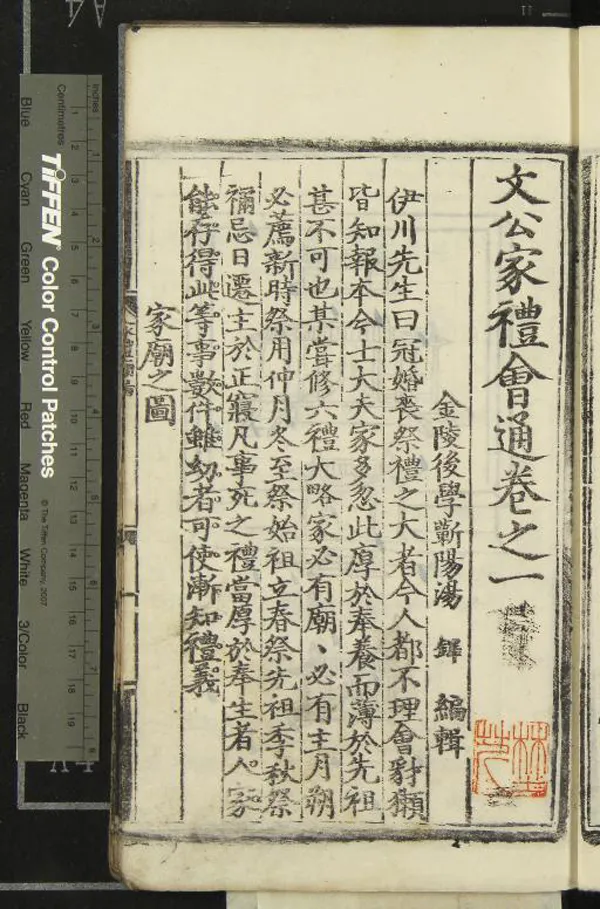 文公家禮會通卷之一
金陵後學蘄陽湯 鐸 編輯
伊川先生曰冠婚喪祭禮之大者今人都不理會豺獺
皆知報本今士大夫家多忽此厚於奉養而薄於先祖
甚不可也某嘗修六禮大略家必有廟、必有主月朔
必薦新時祭用仲月冬至祭始祖立春祭先祖季秋祭
禰忌日遷主於正寢凡事死之禮當厚於奉生者人家
能存得此等事數件雖幼者可使漸知禮義
家廟之圖
Inches
Centimetres
TIFFEN® Color Control Patches
© The Tiffen Company, 2007
Blue
Cyan
Green
Yellow
Red
Magenta
White
3/Color
Black